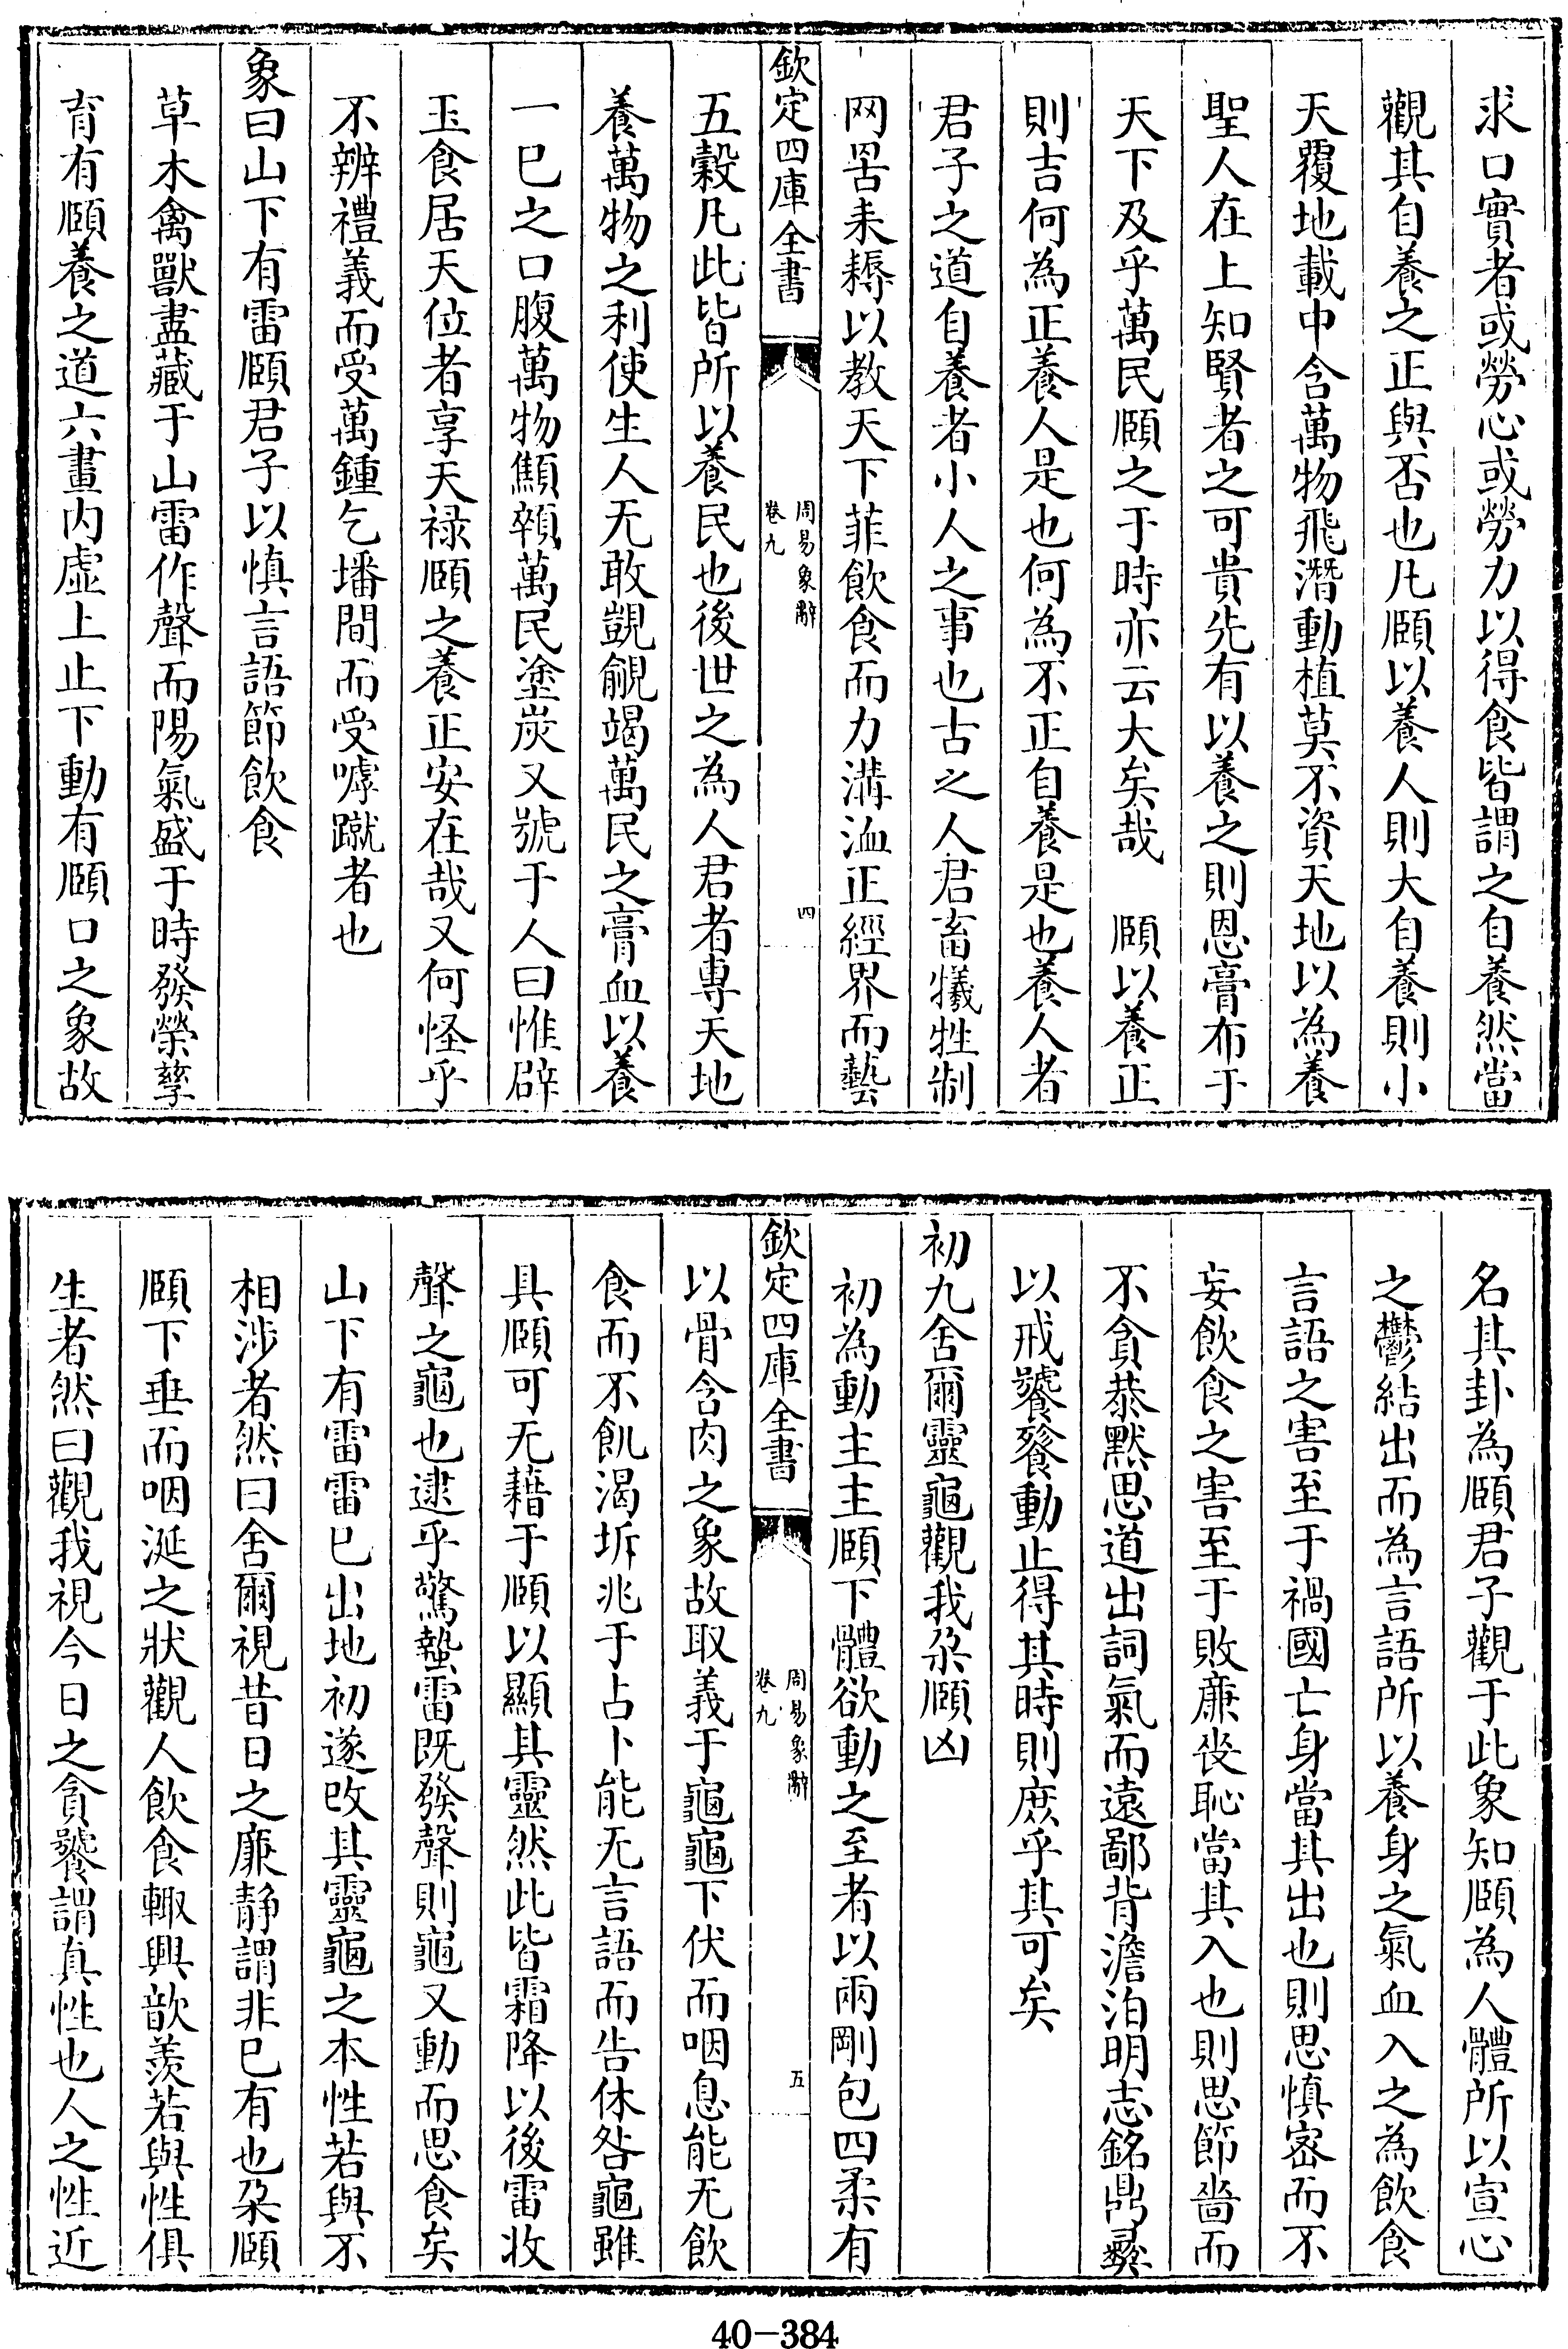 求口實者或勞心或勞力以得食皆謂之自養然當
觀其自養之正與否也凡頤以養人則大自養則小
天覆地載中含萬物飛潛動植莫不資天地以為養
聖人在上知賢者之可貴先有以養之則恩膏布于
天下及乎萬民頤之于時亦云大矣哉　頤以養正
則吉何為正養人是也何為不正自養是也養人者
君子之道自養者小人之事也古之人君畜犧牲制
网罟耒耨以教天下菲飲食而力溝洫正經界而藝
欽定四庫全書
周易象辭
卷九
四
五穀凡此皆所以養民也後世之為人君者專天地
養萬物之利使生人无敢覬覦竭萬民之膏血以養
一已之口腹萬物顦顇萬民塗炭又號于人曰惟辟
玉食居天位者享天禄頤之養正安在哉又何怪乎
不辨禮義而受萬鍾乞墦間而受嘑蹴者也
象曰山下有雷頤君子以慎言語節飲食
草木禽獸盡藏于山雷作聲而陽氣盛于時發榮孳
育有頤養之道六畫内虛上止下動有頤口之象故
名其卦為頤君子觀于此象知頤為人體所以宣心
之鬱結出而為言語所以養身之氣血入之為飲食
言語之害至于禍國亡身當其出也則思慎宻而不
妄飲食之害至于敗亷丧恥當其入也則思節啬而
不貪恭黙思道出詞氣而遠鄙背澹泊明志銘鼎彞
以戒饕餮動止得其時則庶乎其可矣
初九舍爾靈龜觀我朶頤凶
初為動主主頤下體欲動之至者以兩剛包四柔有
欽定四庫全書
周易象辭
卷九
五
以骨含肉之象故取義于龜龜下伏而咽息能无飲
食而不飢渴坼兆于占卜能无言語而告休咎龜雖
具頤可无藉于頤以顯其靈然此皆霜降以後雷收
聲之龜也逮乎驚蟄雷既發聲則龜又動而思食矣
山下有雷雷已出地初遂改其靈龜之本性若與不
相涉者然曰舍爾視昔日之廉静謂非已有也朶頤
頤下垂而咽涎之狀觀人飲食輙興歆羨若與性俱
生者然曰觀我視今日之貪饕謂真性也人之性近
40-384